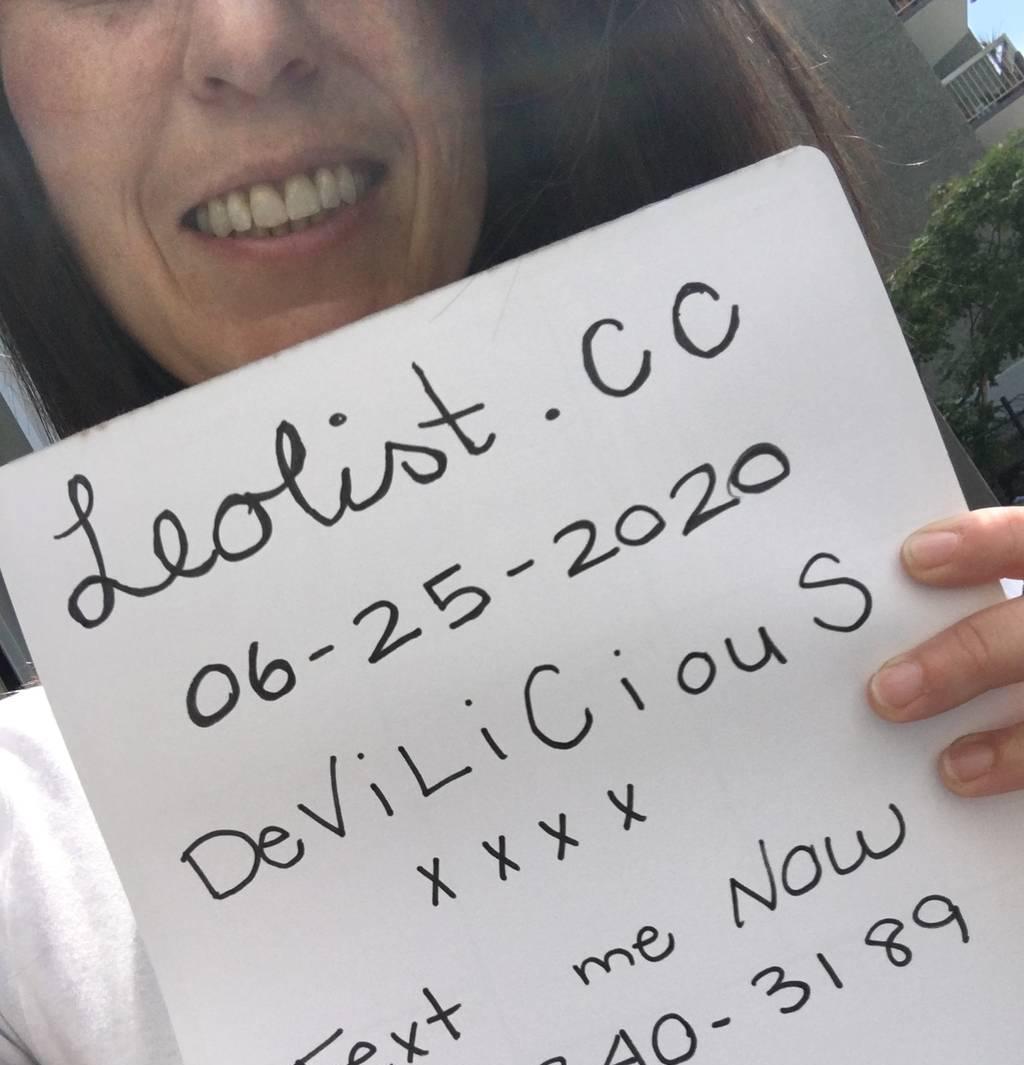 Leolist.cc
06-25-2020
DeViLiCiouS
x x x x
Text me Now
40-3189